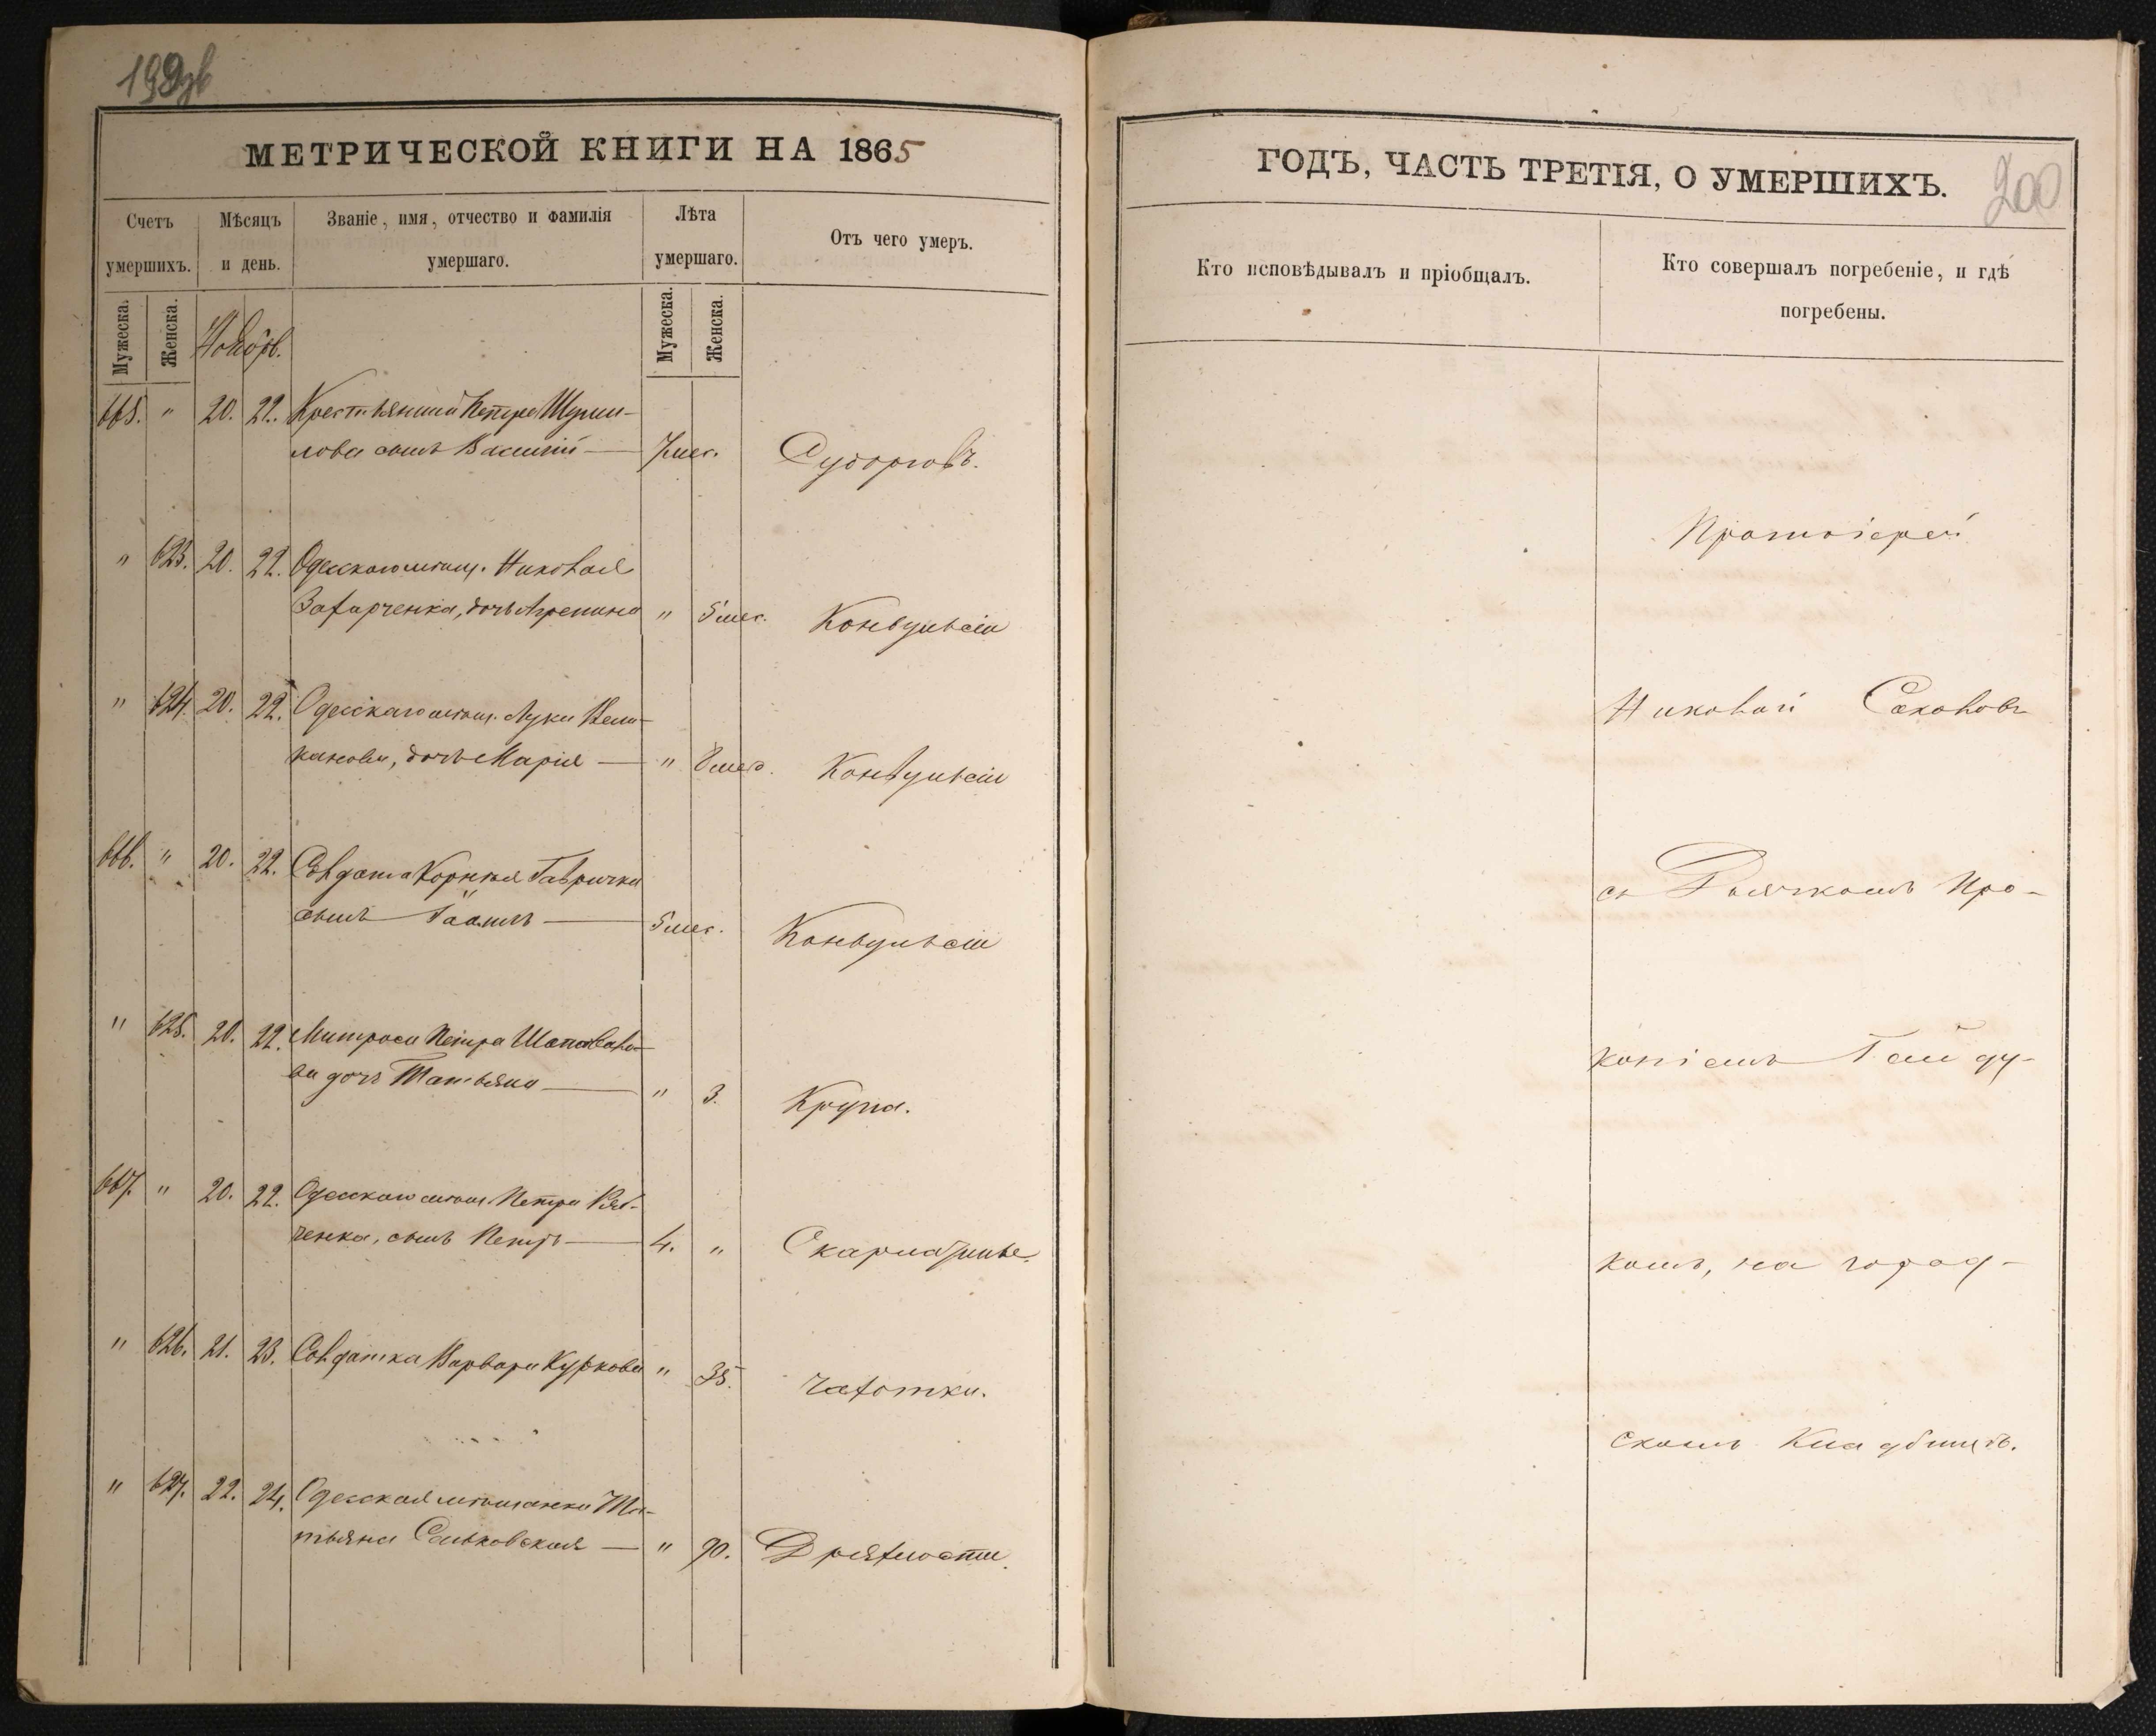 199об
МЕТРИЧЕСКОЙ КНИГИ НА 1865
Счетъ умершихъ.
Мѣсяцъ и день.
Званіе, имя, отчество и фамилія умершаго.
Лѣта умершаго.
Отъ чего умеръ.
Мужеска.
Женска.
Ноябрь.
Мужеска.
Женска.
665. " 20. 22. Крестьянина Петра
лова сынъ Василій — 7 мес. Судорговъ.
" 623. 20. 22. Одесскаго мѣщ. Николая
Захарченка, дочь Агрепина " 5 мес. Конвульсіи
" 624. 20. 22. Одесскаго мѣщ. Луки Вели-
канова, дочь Марія — " 8 мес. Конвульсіи
666. " 20. 22. Солдата Корнѣя Гавричка
сынъ — 5 мес. Конвульсіи
" 625. 20. 22. Матроса Петра Шаповало-
ва дочь Татьяна — " 3. Крупа.
667. " 20. 22. Одесскаго мѣщ. Петра
ченка, сынъ Петръ — 4. " Скарлатины.
" 626. 21. 23. Солдатка Варвара Куркова " 35. Чахотки.
" 627. 22. 24. Одесская мѣщанка Та-
тьяна Сальковская — " 90. Дряхлости.
ГОДЪ, ЧАСТЬ ТРЕТІЯ, О УМЕРШИХЪ.
200
Кто исповѣдывалъ и пріобщалъ.
Кто совершалъ погребеніе, и гдѣ погребены.
Протоіерей
Николай Соколовъ
съ Дьячкомъ Про-
копіемъ Гайду-
комъ, на город-
скомъ Кладбищѣ.